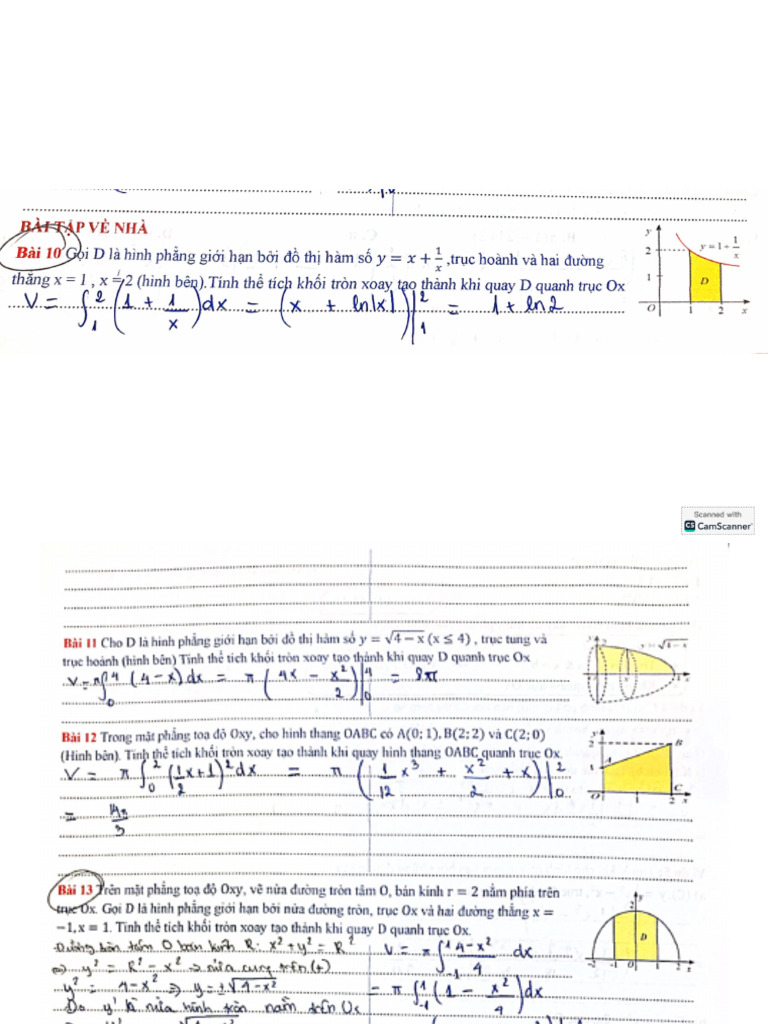 BÀI TẬP VỀ NHÀ
Bài 10 Gọi D là hình phẳng giới hạn bởi đồ thị hàm số y = x + 1/x ,trục hoành và hai đường
thẳng x = 1 , x = 2 (hình bên).Tính thể tích khối tròn xoay tạo thành khi quay D quanh trục Ox
V = ∫₁² (1 + 1/x)dx = (x + ln|x|)|₁² = 1 + ln2
y
2
1
O
1
2
x
y = 1 + 1/x
D
Scanned with
CS CamScanner
Bài 11 Cho D là hình phẳng giới hạn bởi đồ thị hàm số y = √(4 − x) (x ≤ 4) , trục tung và
trục hoành (hình bên) Tính thể tích khối tròn xoay tạo thành khi quay D quanh trục Ox
V = π∫₀⁴ (4 − x)dx = π (4x − x²/2)|₀⁴ = 8π
Bài 12 Trong mặt phẳng toạ độ Oxy, cho hình thang OABC có A(0; 1), B(2; 2) và C(2; 0)
(Hình bên). Tính thể tích khối tròn xoay tạo thành khi quay hình thang OABC quanh trục Ox.
V = π ∫₀² (1/2 x + 1)² dx = π (1/12 x³ + x²/2 + x)|₀²
y
2
1
A
B
O
1
2
C
x
Bài 13 Trên mặt phẳng toạ độ Oxy, vẽ nửa đường tròn tâm O, bán kính r = 2 nằm phía trên
trục Ox. Gọi D là hình phẳng giới hạn bởi nửa đường tròn, trục Ox và hai đường thẳng x =
−1, x = 1. Tính thể tích khối tròn xoay tạo thành khi quay D quanh trục Ox.
Đường tròn tâm O bán kính R: x² + y² = R²
V = π ∫₋₁¹ (4 − x²)/4 dx
⇒ y² = R² − x² ⇒ nửa cung trên (+)
y² = 4 − x² ⇒ y = ±√(4 − x²)
= π ∫₋₁¹ (1 − x²/4)dx
y
2
D
-2
-1
O
1
2
x